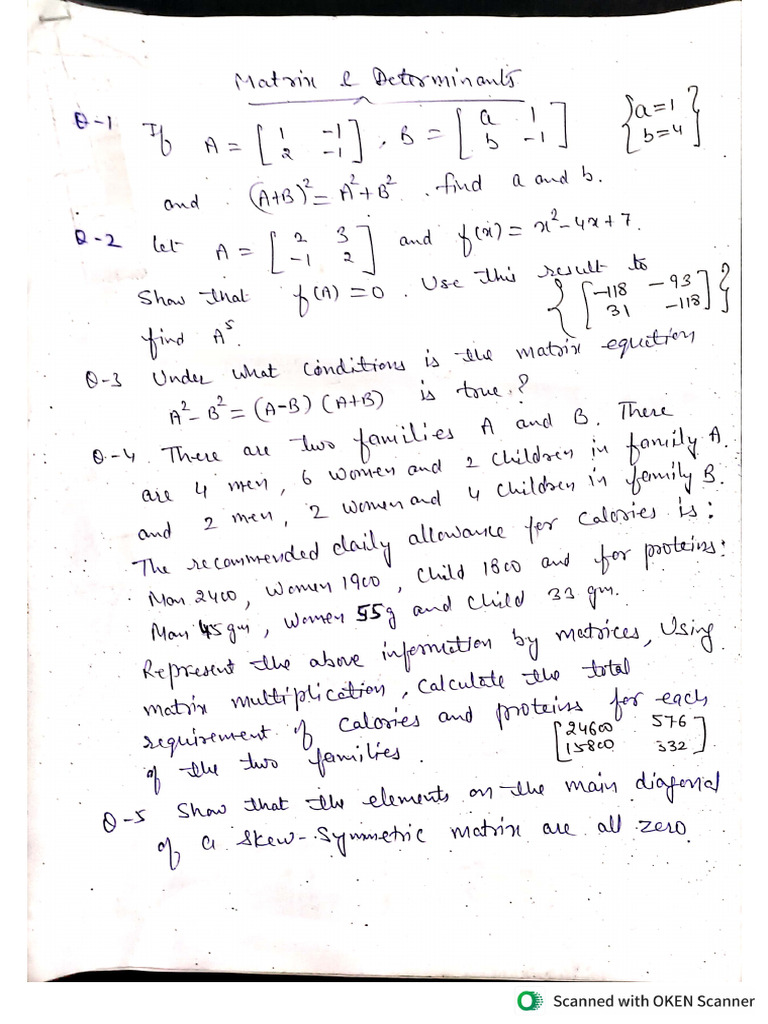 Matrix & Determinants
Q-1 If A = [1 -1; 2 -1], B = [a 1; b -1] {a=1 b=4}
and (A+B)² = A² + B². find a and b.
Q-2 Let A = [2 3; -1 2] and f(x) = x² - 4x + 7.
Show that f(A) = 0. Use this result to
find A⁵. {[-118 -93; 31 -118]}
Q-3 Under what conditions is the matrix equction
A² - B² = (A-B) (A+B) is true?
Q-4. There are two families A and B. There
are 4 men, 6 women and 2 children in family A.
and 2 men, 2 women and 4 children in family B.
The recommended daily allowance for calories is:
Man 2400, Women 1900, Child 1800 and for proteins:
Man 45 gm, women 55g and child 33 gm.
Represent the above information by matrices, Using
matrix multiplication, calculate the total
requirement of calories and proteins for each
of the two families. [24600 576; 15800 332].
Q-5 Show that the elements on the main diagonal
of a skew-symmetric matrix are all zero.
Scanned with OKEN Scanner